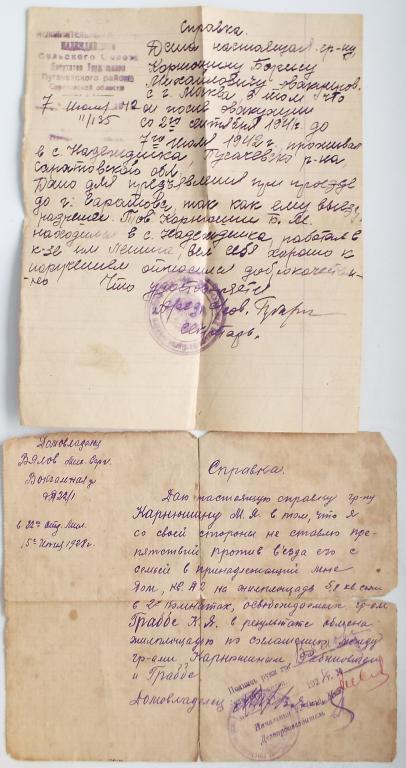 Справка.
ИСПОЛНИТЕЛЬНЫЙ
НАДЕЖДИНСКОГО
Сельского Совета
Депутатов Трудящихся
Пугачевского района
Саратовской области
7 Июля 1942
11/135
Дана настоящая гр-ну
Карнюшину Борису
Михайловичу
с г. Москва, в том что
он после эвакуации
со 2го октября 1941г. до
7го июля 1942г. проживал
в с. Надеждинка, Пугачевско р-на,
Саратовской обл.
Дано для предъявления при проезде
до г. Саратова, так как ему выезд
назначен. Тов. Карнюшин Б. М.
находился в с. Надеждинка, работал в
к-зе им Ленина, вел себя хорошо к
поручениям относился доброкачествен-
но Что удостоверяет
Пред. с/сов.
секретарь.
Домовладелец
Вялов Мих. Серг.
Вокзальная ул
д № 22/1
в 22е отд. Мил.
5го Июня 1928г.
Справка.
Даю настоящую справку гр-ну
Карнюшину М. Я. в том, что я
со своей стороны не ставлю пре-
пятствий против въезда его с
семьей в принадлежащий мне
дом, кв. № 2 на жилплощадь
в 2х комнатах, освобождаемых гр-ом
Граббе К. Я. в результате обмена
жилплощадью по соглашению между
гр-ами, Карнюшиным
и Граббе
Домовладелец
Подпись руки гр.
192 г.
Начальник
Делопроизводитель